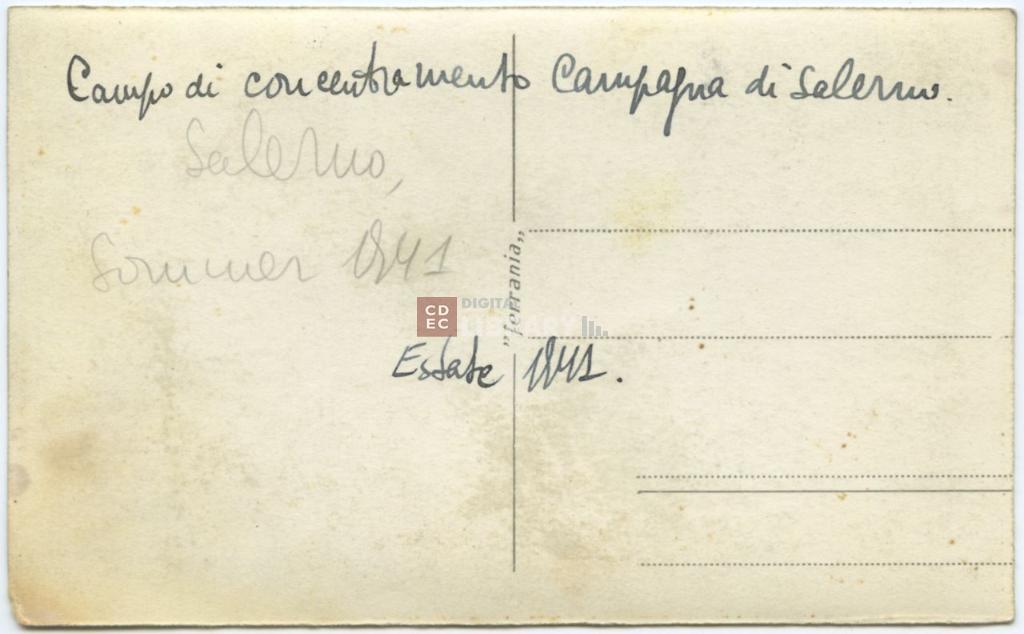 Campo di concentramento Campagna di Salerno.
Salerno,
Sommer 1941
"ferrania"
CD
EC
DIGITAL
LIBRARY
Estate 1941.